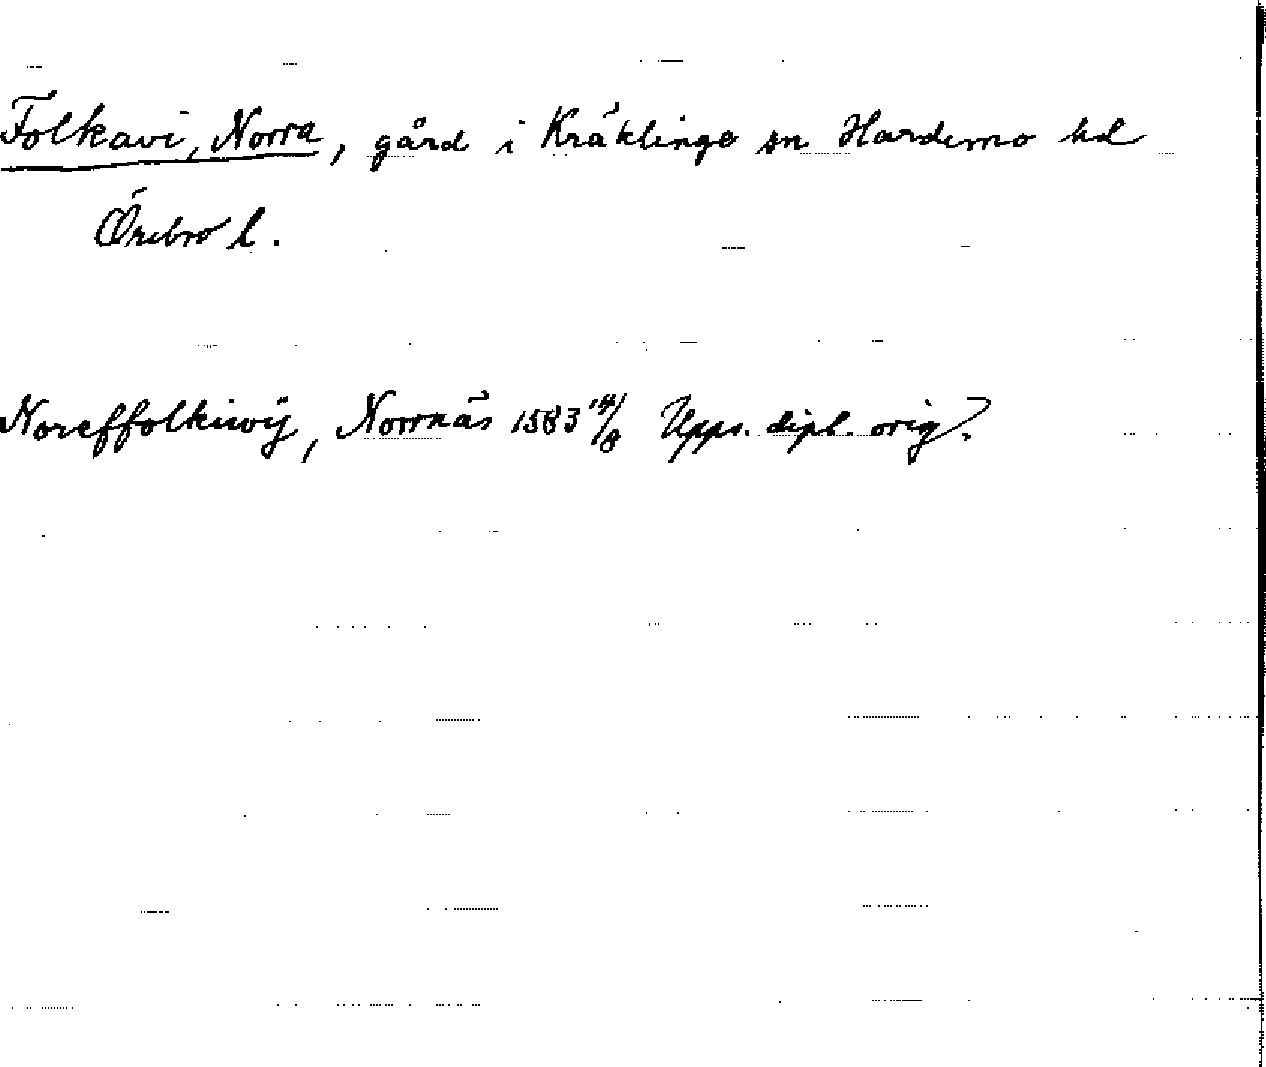 Folkavi, Norra, gård i Kräklinge sn Hardemo hd
Örebro l.
Noreffolkiwÿ, Norrnäs 1583 14/8 Upps. dipl. orig.